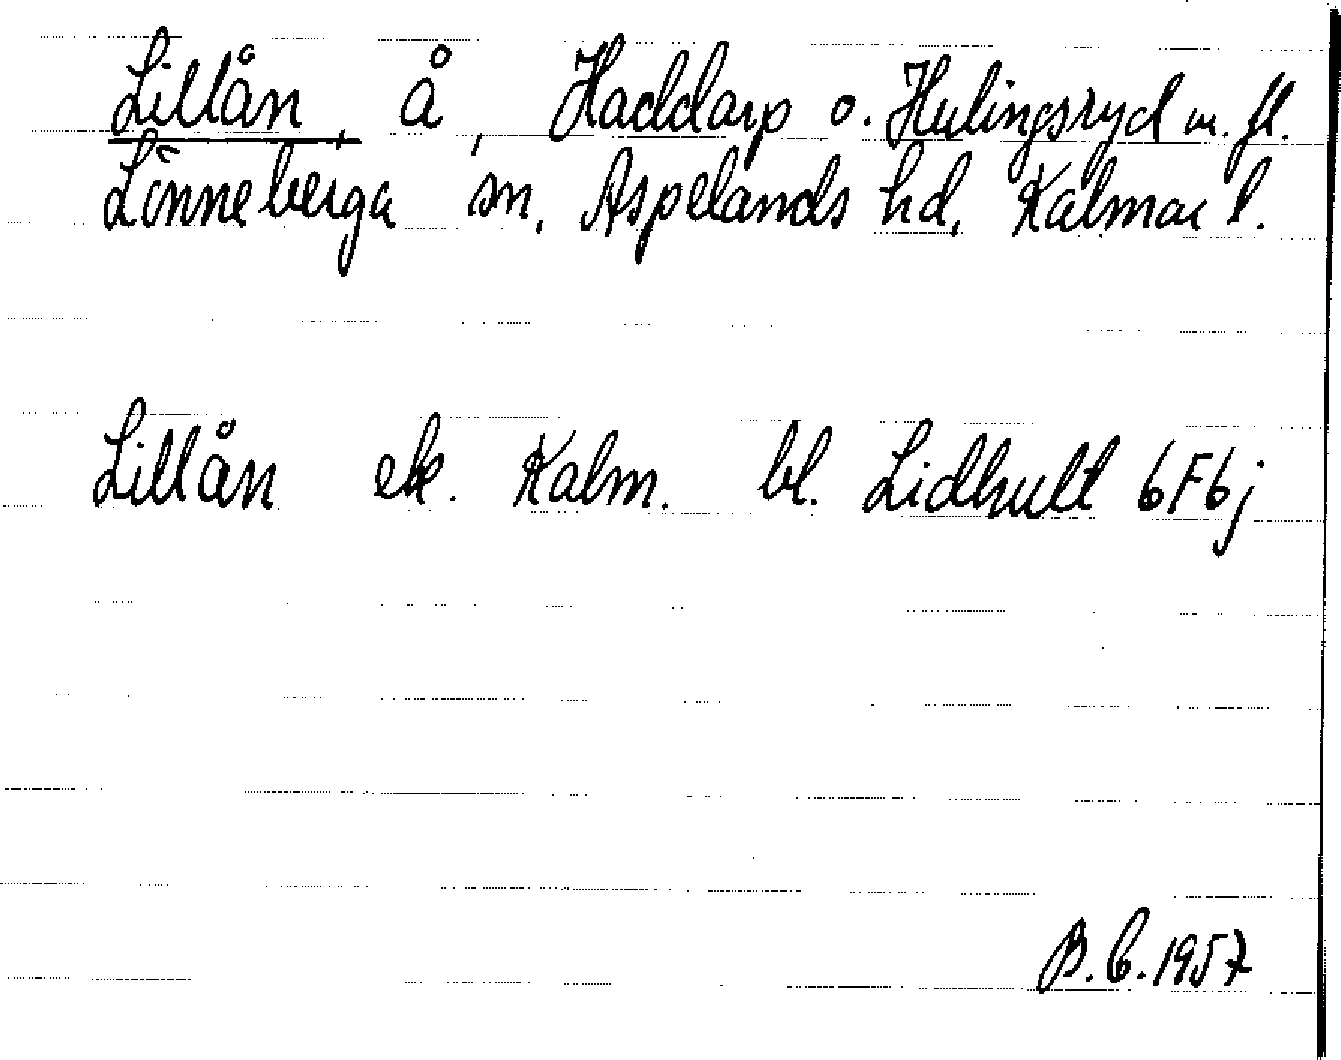 Lillån, å, Haddarp o. Hulingsryd m. fl.
Lönneberga sn, Aspelands hd, Kalmar l.
Lillån ek. Kalm. bl. Lidhult 6F6j
B. C. 1957